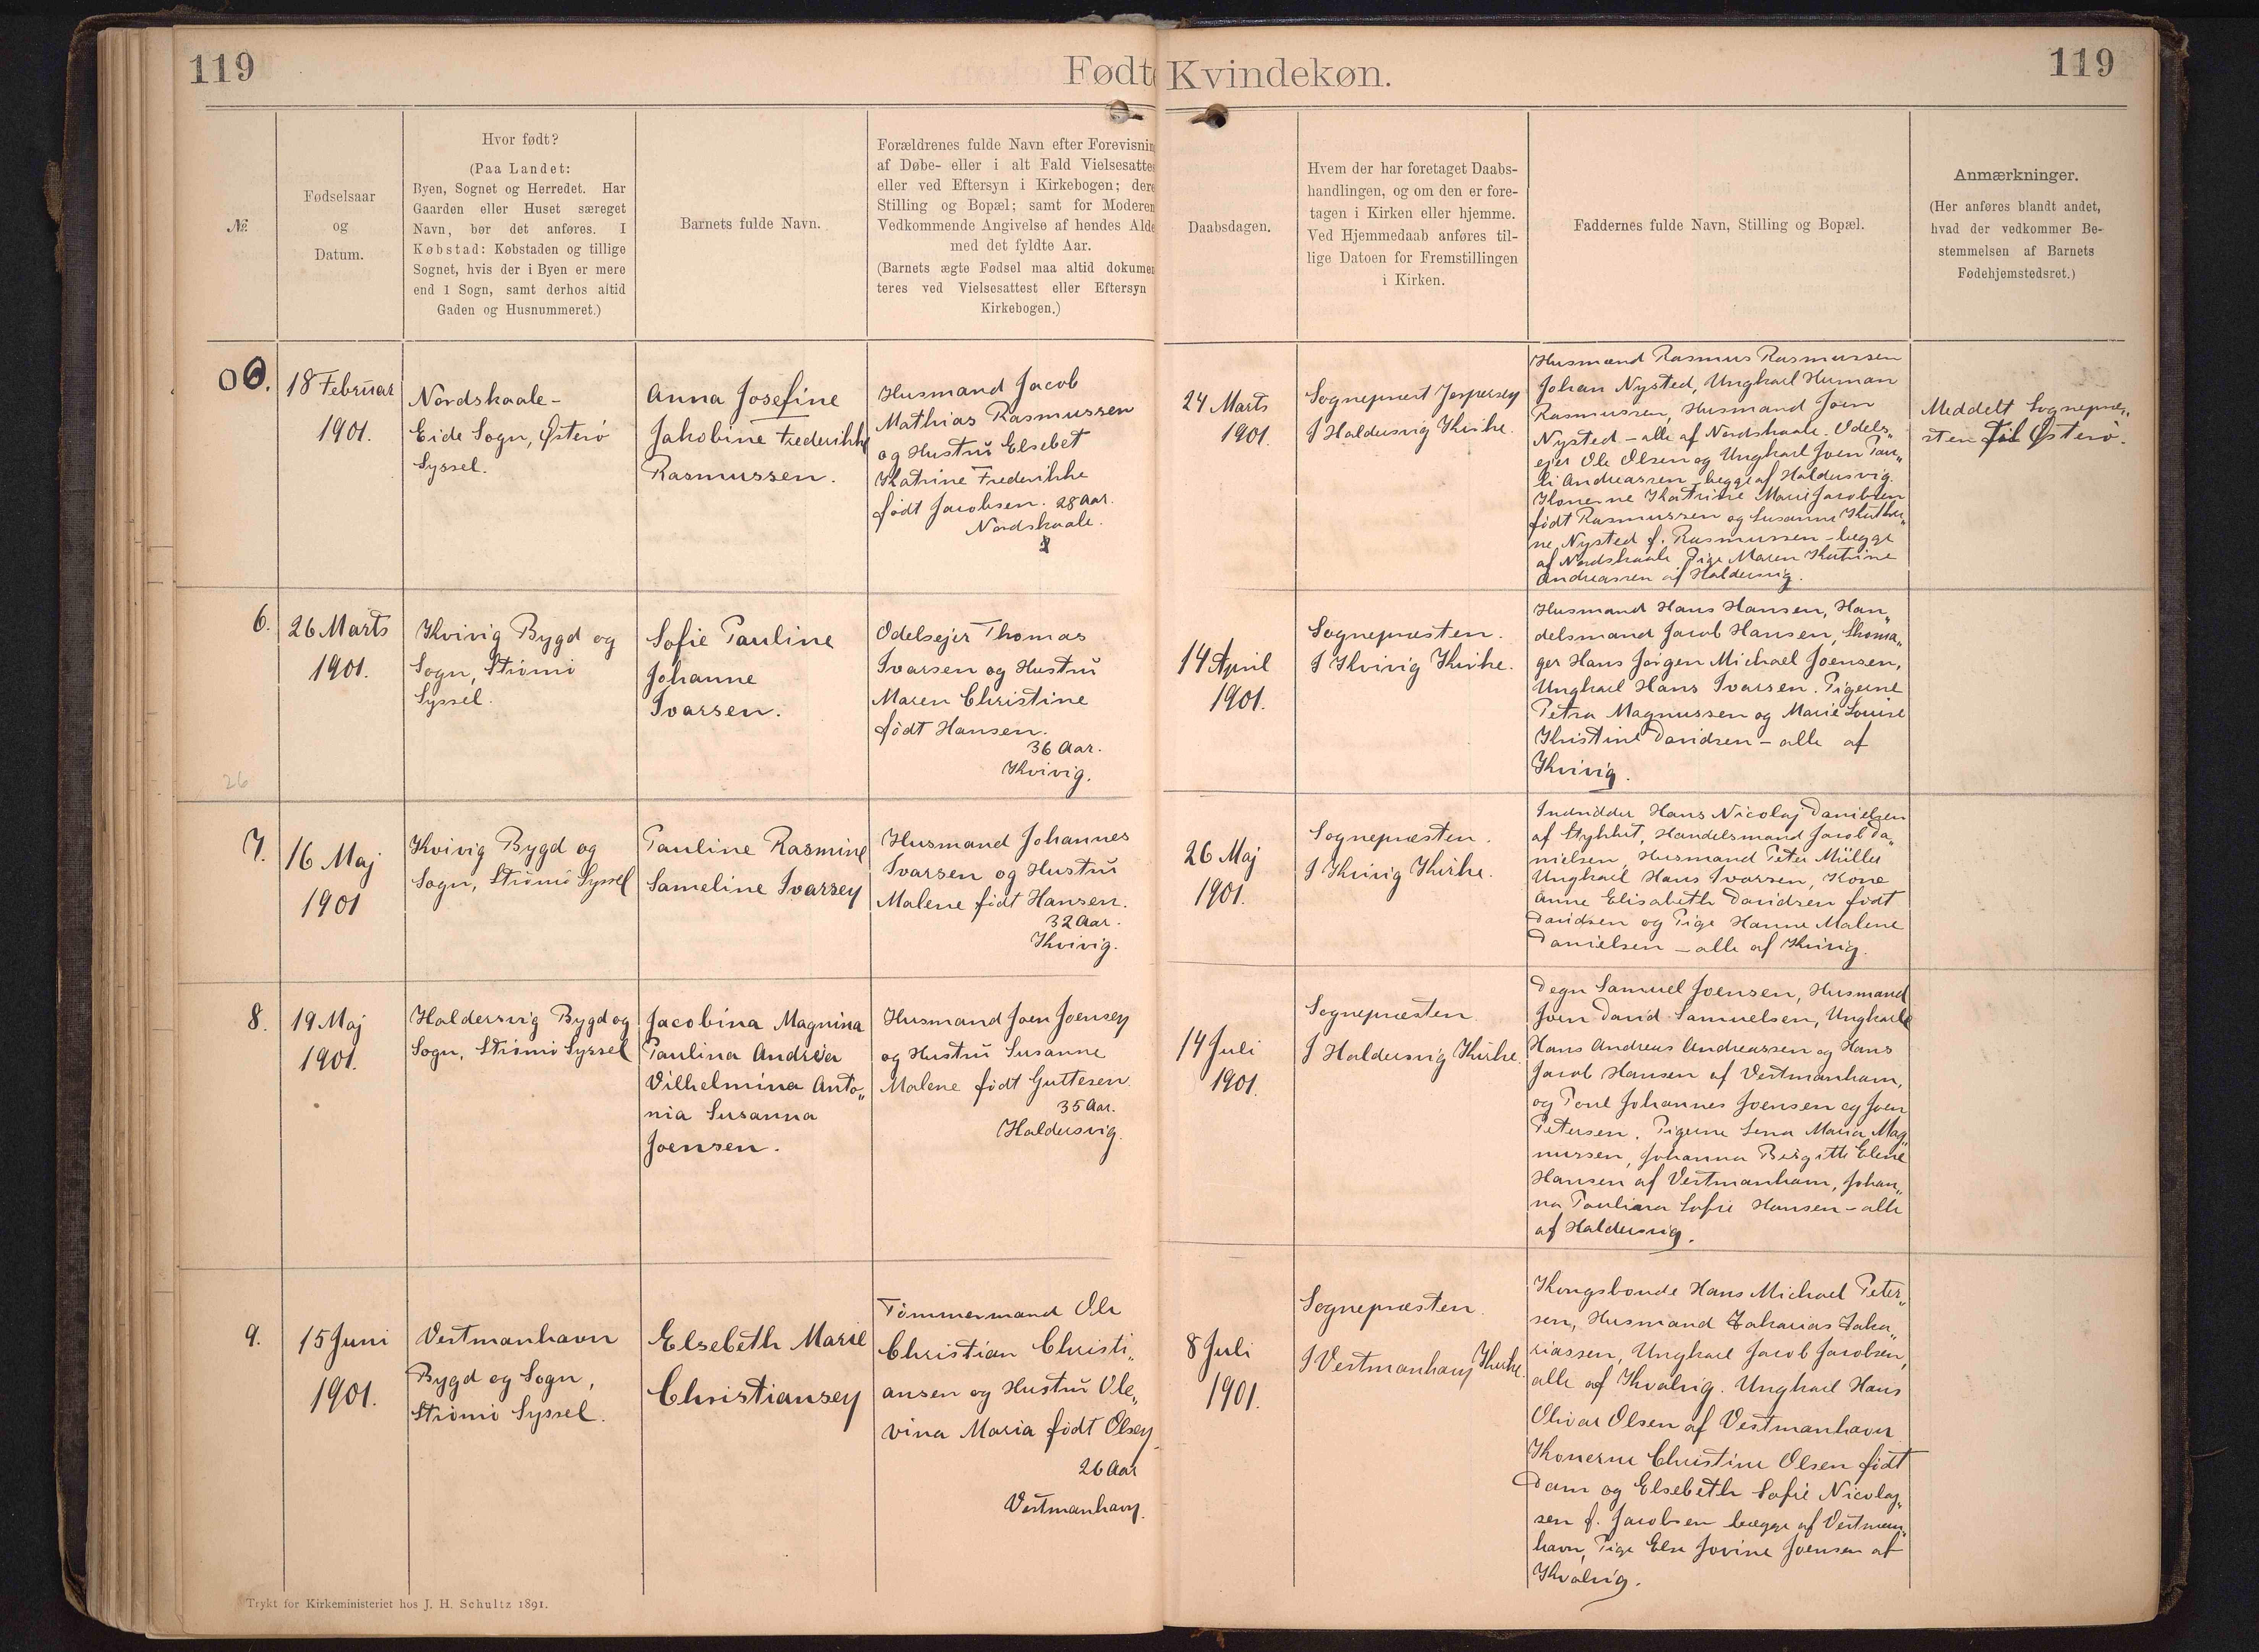 119
Fødte Kvindekøn.
119
№
Fødselsaar
og
Datum.
Hvor født?
(Paa Landet:
Byen, Sognet og Herredet. Har
Gaarden eller Huset særeget
Navn, bør det anføres. I
Købstad: Købstaden og tillige
Sognet, hvis der i Byen er mere
end 1 Sogn, samt derhos altid
Gaden og Husnummeret.)
Barnets fulde Navn.
Forældrenes fulde Navn efter Forevisnin
af Døbe- eller i alt Fald Vielsesatte
eller ved Eftersyn i Kirkebogen; dere
Stilling og Bopæl; samt for Moderen
Vedkommende Angivelse af hendes Alde
med det fyldte Aar.
(Barnets ægte Fødsel maa altid dokumen
teres ved Vielsesattest eller Eftersyn
Kirkebogen.)
Daabsdagen.
Hvem der har foretaget Daabs-
handlingen, og om den er fore-
tagen i Kirken eller hjemme.
Ved Hjemmedaab anføres til-
lige Datoen for Fremstillingen
i Kirken.
Faddernes fulde Navn, Stilling og Bopæl.
Anmærkninger.
(Her anføres blandt andet,
hvad der vedkommer Be-
stemmelsen af Barnets
Fødehjemstedsret.)
18 Februar
1901.
Nordskaale-
Eide Sogn, Østerø
Syssel.
Anna Josefine
Jakobine Frederikke
Rasmussen.
Husmand Jacob
Mathias Rasmussen
og Hustru Elsebet
Katrine Frederikke
født Jacobsen. 28 Aar.
Nordskaale.
24 Marts
1901.
Sognepræst Jespersen
I Haldersvig Kirke.
Husmænd Rasmus Rasmussen
Johan Nysted, Ungkarl Human
Rasmussen, Husmand Joen
Nysted – alle af Nordskaale. Odels„
ejer Ole Olsen og Ungkarl Joen Pau„
li Andreassen – begge af Haldersvig.
Konerne Katrine Marie Jacobsen
født Rasmussen og Susanne Kathri„
ne Nysted f. Rasmussen – begge
af Nordskaale. Pige Maren Katrine
Andreassen af Haldersvig.
Meddelt Sognepræ„
sten til Østerø.
6.
26 Marts
1901.
Kvivig Bygd og
Sogn, Strømø
Syssel.
Sofie Pauline
Johanne
Ivarsen.
Odelsejer Thomas
Ivarsen og Hustru
Maren Christine
født Hansen.
36 Aar.
Kvivig.
14 April
1901.
Sognepræsten.
I Kvivig Kirke.
Husmand Hans Hansen, Han„
delsmand Jacob Hansen, Skoma„
ger Hans Jørgen Michael Joensen,
Ungkarl Hans Ivarsen. Pigerne
Petra Magnussen og Marie Louise
Kristine Davidsen – alle af
Kvivig.
26
7.
16 Maj
1901
Kvivig Bygd og
Sogn, Strømø Syssel
Pauline Rasmine
Sameline Ivarsen
Husmand Johannes
Ivarsen og Hustru
Malene født Hansen.
32 Aar.
Kvivig.
26 Maj
1901.
Sognepræsten.
I Kvivig Kirke.
Hans Nicolaj Danielsen
af Stykket, Handelsmand Jacob Da„
nielsen, Husmand Peter Müller
Ungkarl Hans Ivarsen, Kone
Anne Elisabeth Davidsen født
Davidsen og Pige Hanne Malene
Danielsen – alle af Kvivig.
8.
19 Maj
1901.
Haldersvig Bygd og
Sogn, Strømø Syssel
Jacobina Magnina
Paulina Andrea
Vilhelmina Anto„
nia Susanna
Joensen.
Husmand Joen Joensen
og Hustru Susanne
Malene født Guttesen.
35 Aar.
Haldersvig.
14 Juli
1901.
Sognepræsten.
I Haldersvig Kirke.
Degn Samuel Joensen, Husmand
Joen David Samuelsen, Ungkarle
Hans Andreas Andreassen og Hans
Jacob Hansen af Vestmanham,
og Poul Johannes Joensen og Joen
Petersen. Pigerne Lena Maria Mag„
nussen, Johanna Birgitte Elene
Hansen af Vestmanham, Johan„
na Paulina Sofie Hansen – alle
af Haldersvig.
9.
15 Juni
1901.
Vestmanhavn
Bygd og Sogn,
Strømø Syssel.
Elsebeth Marie
Christiansen
Tømmermand Ole
Christian Christi„
ansen og Hustru Ole„
vina Maria født Olsen.
26 Aar
Vestmanhavn.
8 Juli
1901.
Sognepræsten.
I Vestmanhavn Kirke.
Kongsbonde Hans Michael Peter„
sen, Husmand Zakarias Zaka„
riassen, Ungkarl Jacob Jacobsen,
alle af Kvalvig. Ungkarl Hans
Olivar Olsen af Vestmanhavn
Konerne Christine Olsen født
Dam og Elsebeth Sofie Nicolaj„
sen f. Jacobsen begge af Vestman„
havn, Pige Else Jovine Joensen af
Kvalvig.
Trykt for Kirkeministeriet hos J. H. Schultz 1891.